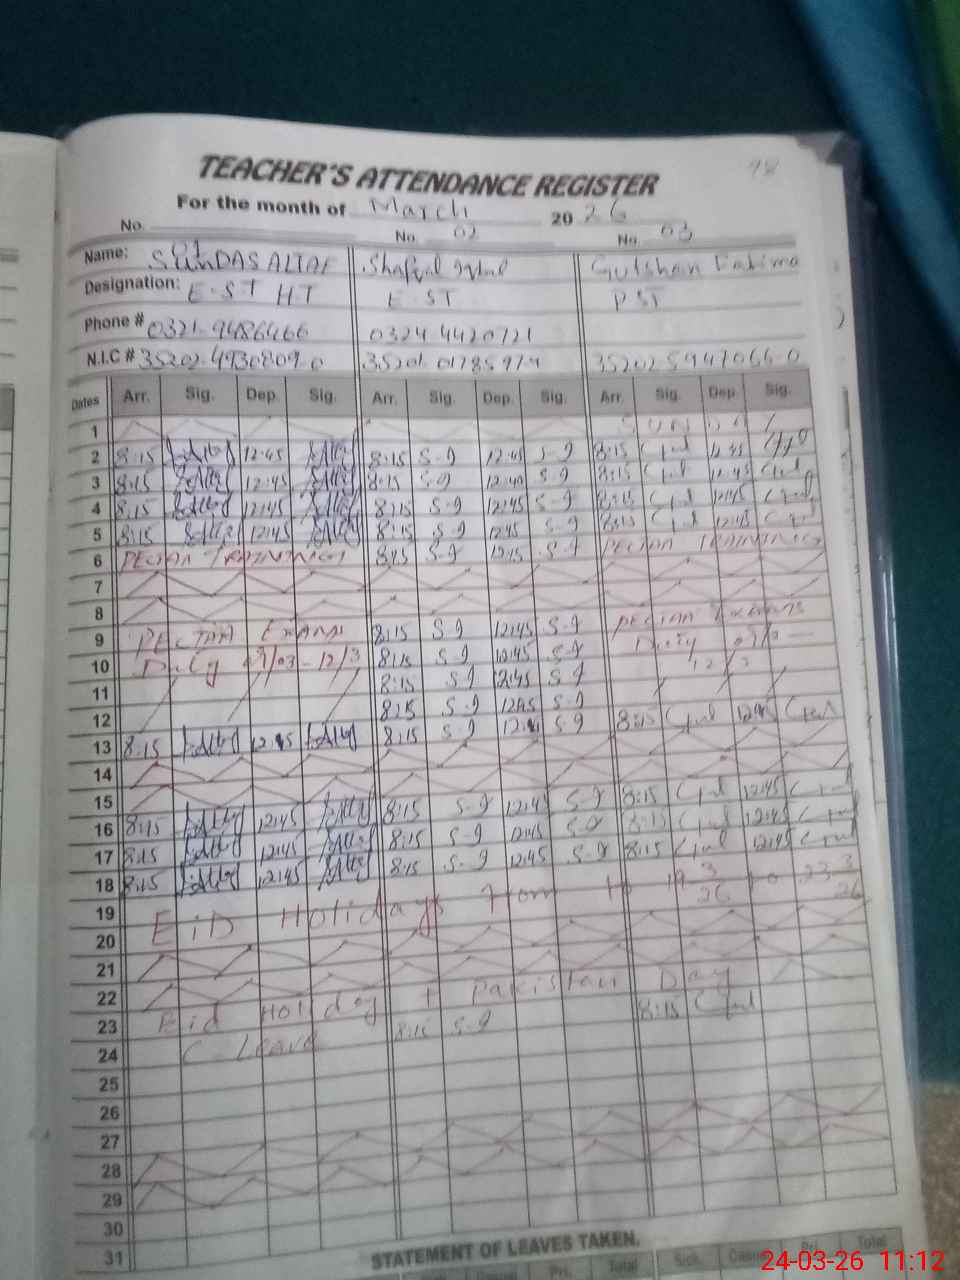 98
TEACHER'S ATTENDANCE REGISTER
For the month of March 20 26
No. 01 No. 02 No. 03
Name: SUNDAS ALTAF Shafqat Iqbal Gulshan Fatima
Designation: E.S.T HT E.ST PST
Phone # 0321-9486466 0324 4420121
N.I.C #
Dates Arr. Sig. Dep. Sig. Arr. Sig. Dep. Sig. Arr. Sig. Dep. Sig.
1 SUNDAY
2 8:15 12:45 8:15 S-9 12:45 S-9 8:15 Gul 12:45
3 8:15 12:45 8:15 S-9 12:40 S-9 8:15 Gul 12:45 Gul
4 8:15 12:45 8:15 S-9 12:45 S-9 8:15 Gul 12:45 Gul
5 8:15 12:45 8:15 S-9 12:45 S-9 8:15 Gul 12:45 Gul
6 PECTAA TRAINING 8:15 S-9 12:45 S-9 PECTAA TRAINING
7
8
9 PECTAA EXAMS 8:15 S-9 12:45 S-9 PECTAA EXAMS
10 Duty 09/03-12/3 8:15 S-9 12:45 S-9 Duty 09/3
11 8:15 S-9 12:45 S-9 12/3
12 8:15 S-9 12:45 S-9
13 8:15 12:45 8:15 S-9 S-9 8:15 Gul 12:45 Gul
14
15
16 8:15 12:45 8:15 S-9 12:45 S-9 8:15 Gul 12:45 Gul
17 8:15 12:45 8:15 S-9 12:45 S-9 8:15 Gul 12:45 Gul
18 8:15 12:45 8:15 S-9 12:45 S-9 8:15 Gul 12:45 Gul
19 EiD Holidays From 19 3/26 to 23 3/26
20
21
22
23 Eid Holiday + Pakistan Day
24 C-Leave 8:15 S-9 8:15 Gul
25
26
27
28
29
30
31
STATEMENT OF LEAVES TAKEN.
Pri. Total Sick. Casual Pri. Total
24-03-26 11:12